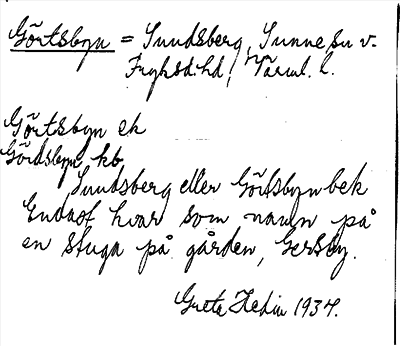 Görtsbyn = Sundsberg, Sunne sn v.
Fryksd. hd, Värml. l.
Görtsbyn ek
Gördsbyn kb
Sundsberg eller Görtsbyn bek
Endast kvar som namn på
en stuga på gården,
Greta Hedin 1934.